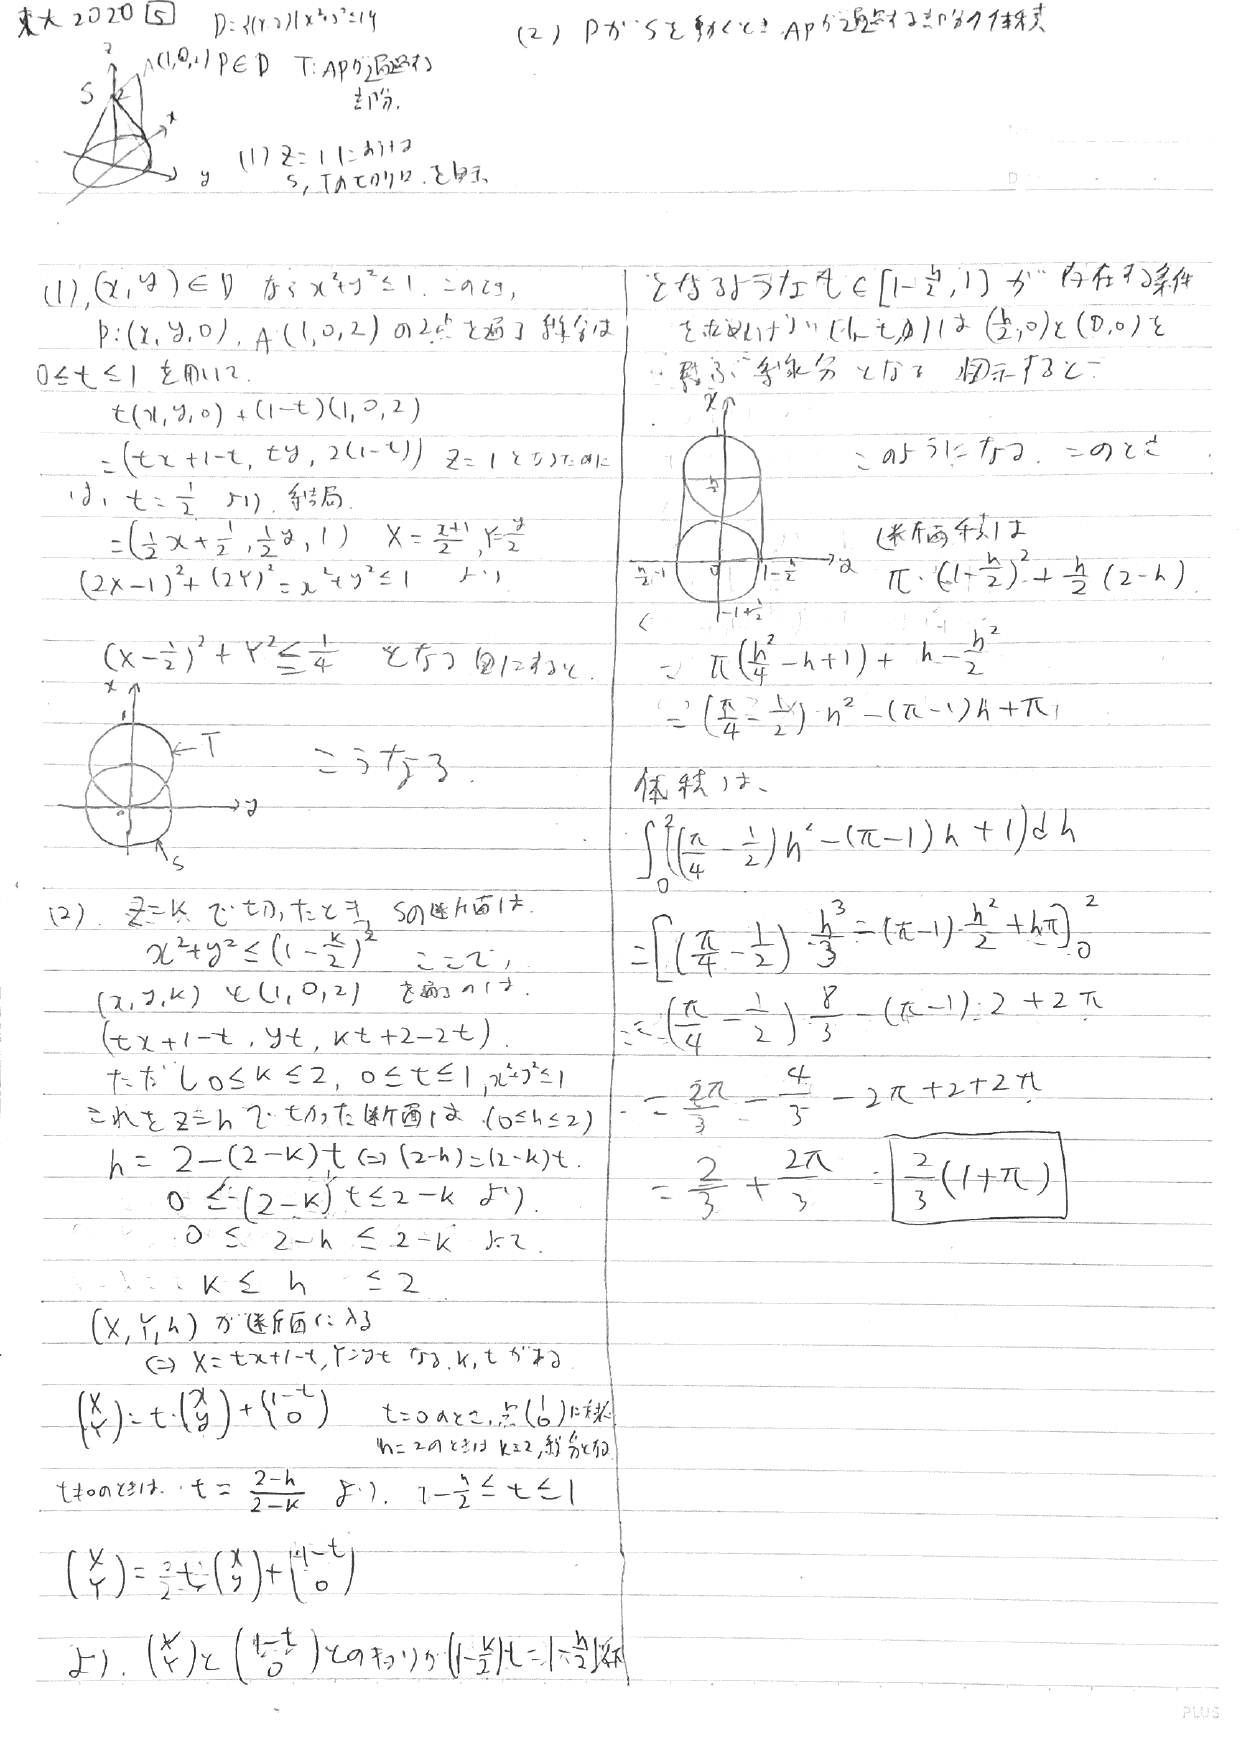 東大 2020 5
D={(x,y)|x²+y²≦1}
A(1,0,2) P∈D T:APが通過する
部分.
S
z
2
x
y
(1) z=1における
S,Tの切り口を図示
(2) PがSを動くときAPが通過する部分の体積
(1),(x,y)∈D なら x²+y²≦1. このとき,
P:(x,y,0), A:(1,0,2)の2点を通る線分は
0≦t≦1 を用いて.
t(x,y,0)+(1-t)(1,0,2)
=(tx+1-t, ty, 2(1-t)) z=1となるために
は, t=1/2 より, 結局.
=(1/2x+1/2, 1/2y, 1) X=(x+1)/2, Y=y/2
(2X-1)²+(2Y)²=x²+y²≦1 より
(X-1/2)²+Y²≦1/4 となる 図にすると.
x
1
←T
0
y
S
こうなる.
(2). z=kで切ったとき Sの断面は.
x²+y²≦(1-k/2)² ここで,
(x,y,k)と(1,0,2)を通るのは.
(tx+1-t, yt, kt+2-2t).
ただし 0≦k≦2, 0≦t≦1, x²+y²≦1
これをz=hで切った断面は.(0≦h≦2)
h=2-(2-k)t⇔(2-h)=(2-k)t.
0≦(2-k)t≦2-k より.
0≦2-h≦2-k よって.
k≦h ≦2
(X,Y,h)が断面に入る
⇔ X=tx+1-t, Y=yt なる k,tがある
(X Y)=t・(x y)+(1-t 0) t=0のとき,点(1 0)に
h=2のときはk=2,線分となる
t≠0のときは. t=(2-h)/(2-k) より. 1-h/2≦t≦1
(X Y)=t(x y)+(1-t 0)
より. (X Y)と(1-t 0)とのきょりが(1-k/2)t=1-h/2以下
となるような t∈[1-h/2,1]が存在する条件
を求めればいい (1-t,0)は(h/2,0)と(0,0)を
結ぶ線分となる 図示すると
x
1
h/2
h/2-1
0
1-h/2
y
-1+h/2
このようになる. このとき
断面積は
π・(1-h/2)²+h/2(2-h)
=π(h²/4-h+1)+h-h²/2
=(π/4-1/2)・h²-(π-1)h+π,
体積は、
∫₀²((π/4-1/2)h²-(π-1)h+1)dh
=[(π/4-1/2)・h³/3-(π-1)・h²/2+hπ]₀²
=(π/4-1/2)・8/3-(π-1)・2+2π
=2π/3-4/3-2π+2+2π
=2/3+2π/3=2/3(1+π)
PLUS